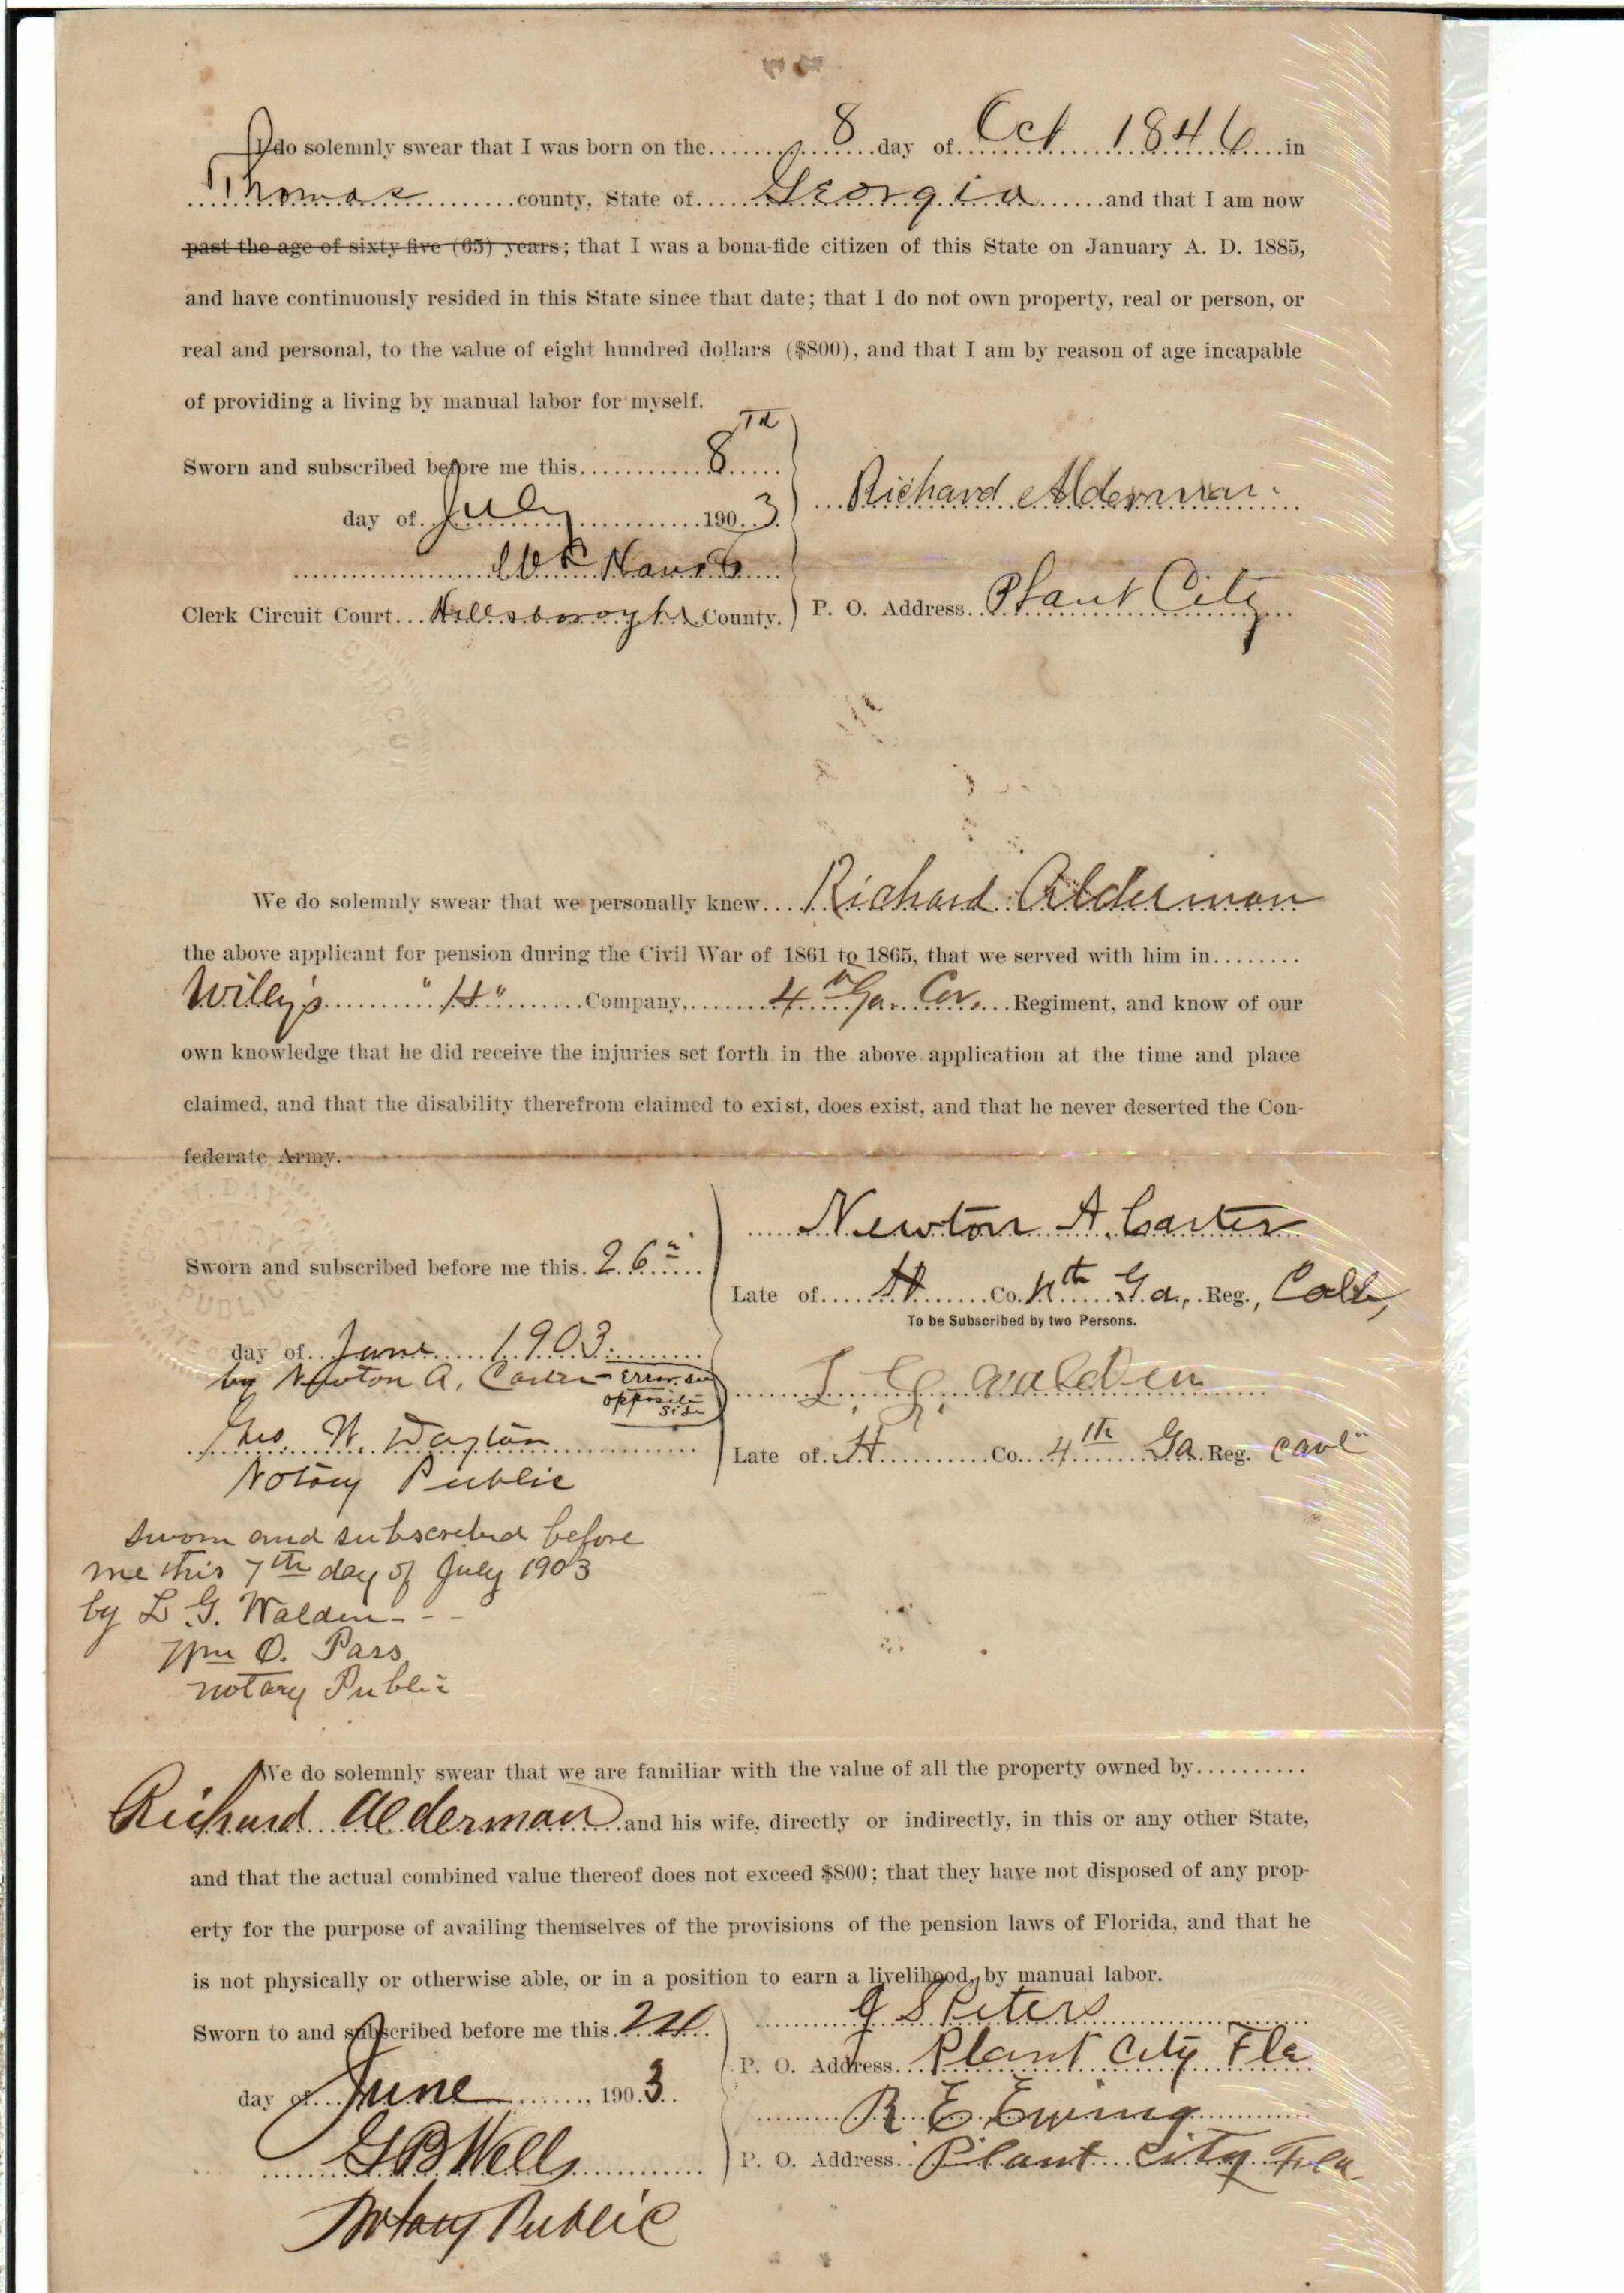 I do solemnly swear that I was born on the 8 day of Oct 1846 in
Thomas county, State of Georgia and that I am now
past the age of sixty five (65) years; that I was a bona-fide citizen of this State on January A. D. 1885,
and have continuously resided in this State since that date; that I do not own property, real or person, or
real and personal, to the value of eight hundred dollars ($800), and that I am by reason of age incapable
of providing a living by manual labor for myself.
Sworn and subscribed before me this 8th
day of July 1903
Richard Alderman
Clerk Circuit Court Hillsborough County.
P. O. Address Plant City
We do solemnly swear that we personally knew Richard Alderman
the above applicant for pension during the Civil War of 1861 to 1865, that we served with him in
Wiley's "H" Company, 4th Ga. Cav. Regiment, and know of our
own knowledge that he did receive the injuries set forth in the above application at the time and place
claimed, and that the disability therefrom claimed to exist, does exist, and that he never deserted the Con-
federate Army.
Newton A. Carter
Sworn and subscribed before me this 26th
Late of H Co. 4th Ga, Reg.,
To be Subscribed by two Persons.
day of June 1903
by Newton A. Carter - Error see
opposite
side
L. G. Walden
Geo. W. Dayton
Late of H Co. 4th Ga Reg. Cavl
Notary Public
Sworn and subscribed before
me this 7th day of July 1903
by L G. Walden - - -
Wm O. Pass
Notary Public
We do solemnly swear that we are familiar with the value of all the property owned by
Richard Alderman and his wife, directly or indirectly, in this or any other State,
and that the actual combined value thereof does not exceed $800; that they have not disposed of any prop-
erty for the purpose of availing themselves of the provisions of the pension laws of Florida, and that he
is not physically or otherwise able, or in a position to earn a livelihood, by manual labor.
J S Peters
Sworn to and subscribed before me this
P. O. Address Plant City Fla
day of June, 1903
R E Ewing
G B Wells
P. O. Address Plant City Fla
Notary Public